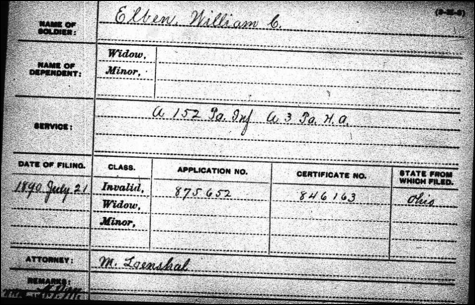 NAME OF SOLDIER: Elben, William C.
NAME OF DEPENDENT: Widow,
Minor,
SERVICE: A 152 Pa. Inf A 3 Pa. H.A.
DATE OF FILING. CLASS. APPLICATION NO. CERTIFICATE NO. STATE FROM WHICH FILED.
1890 July 21 Invalid, 875652 846163 Ohio
Widow,
Minor,
ATTORNEY: M.
REMARKS: